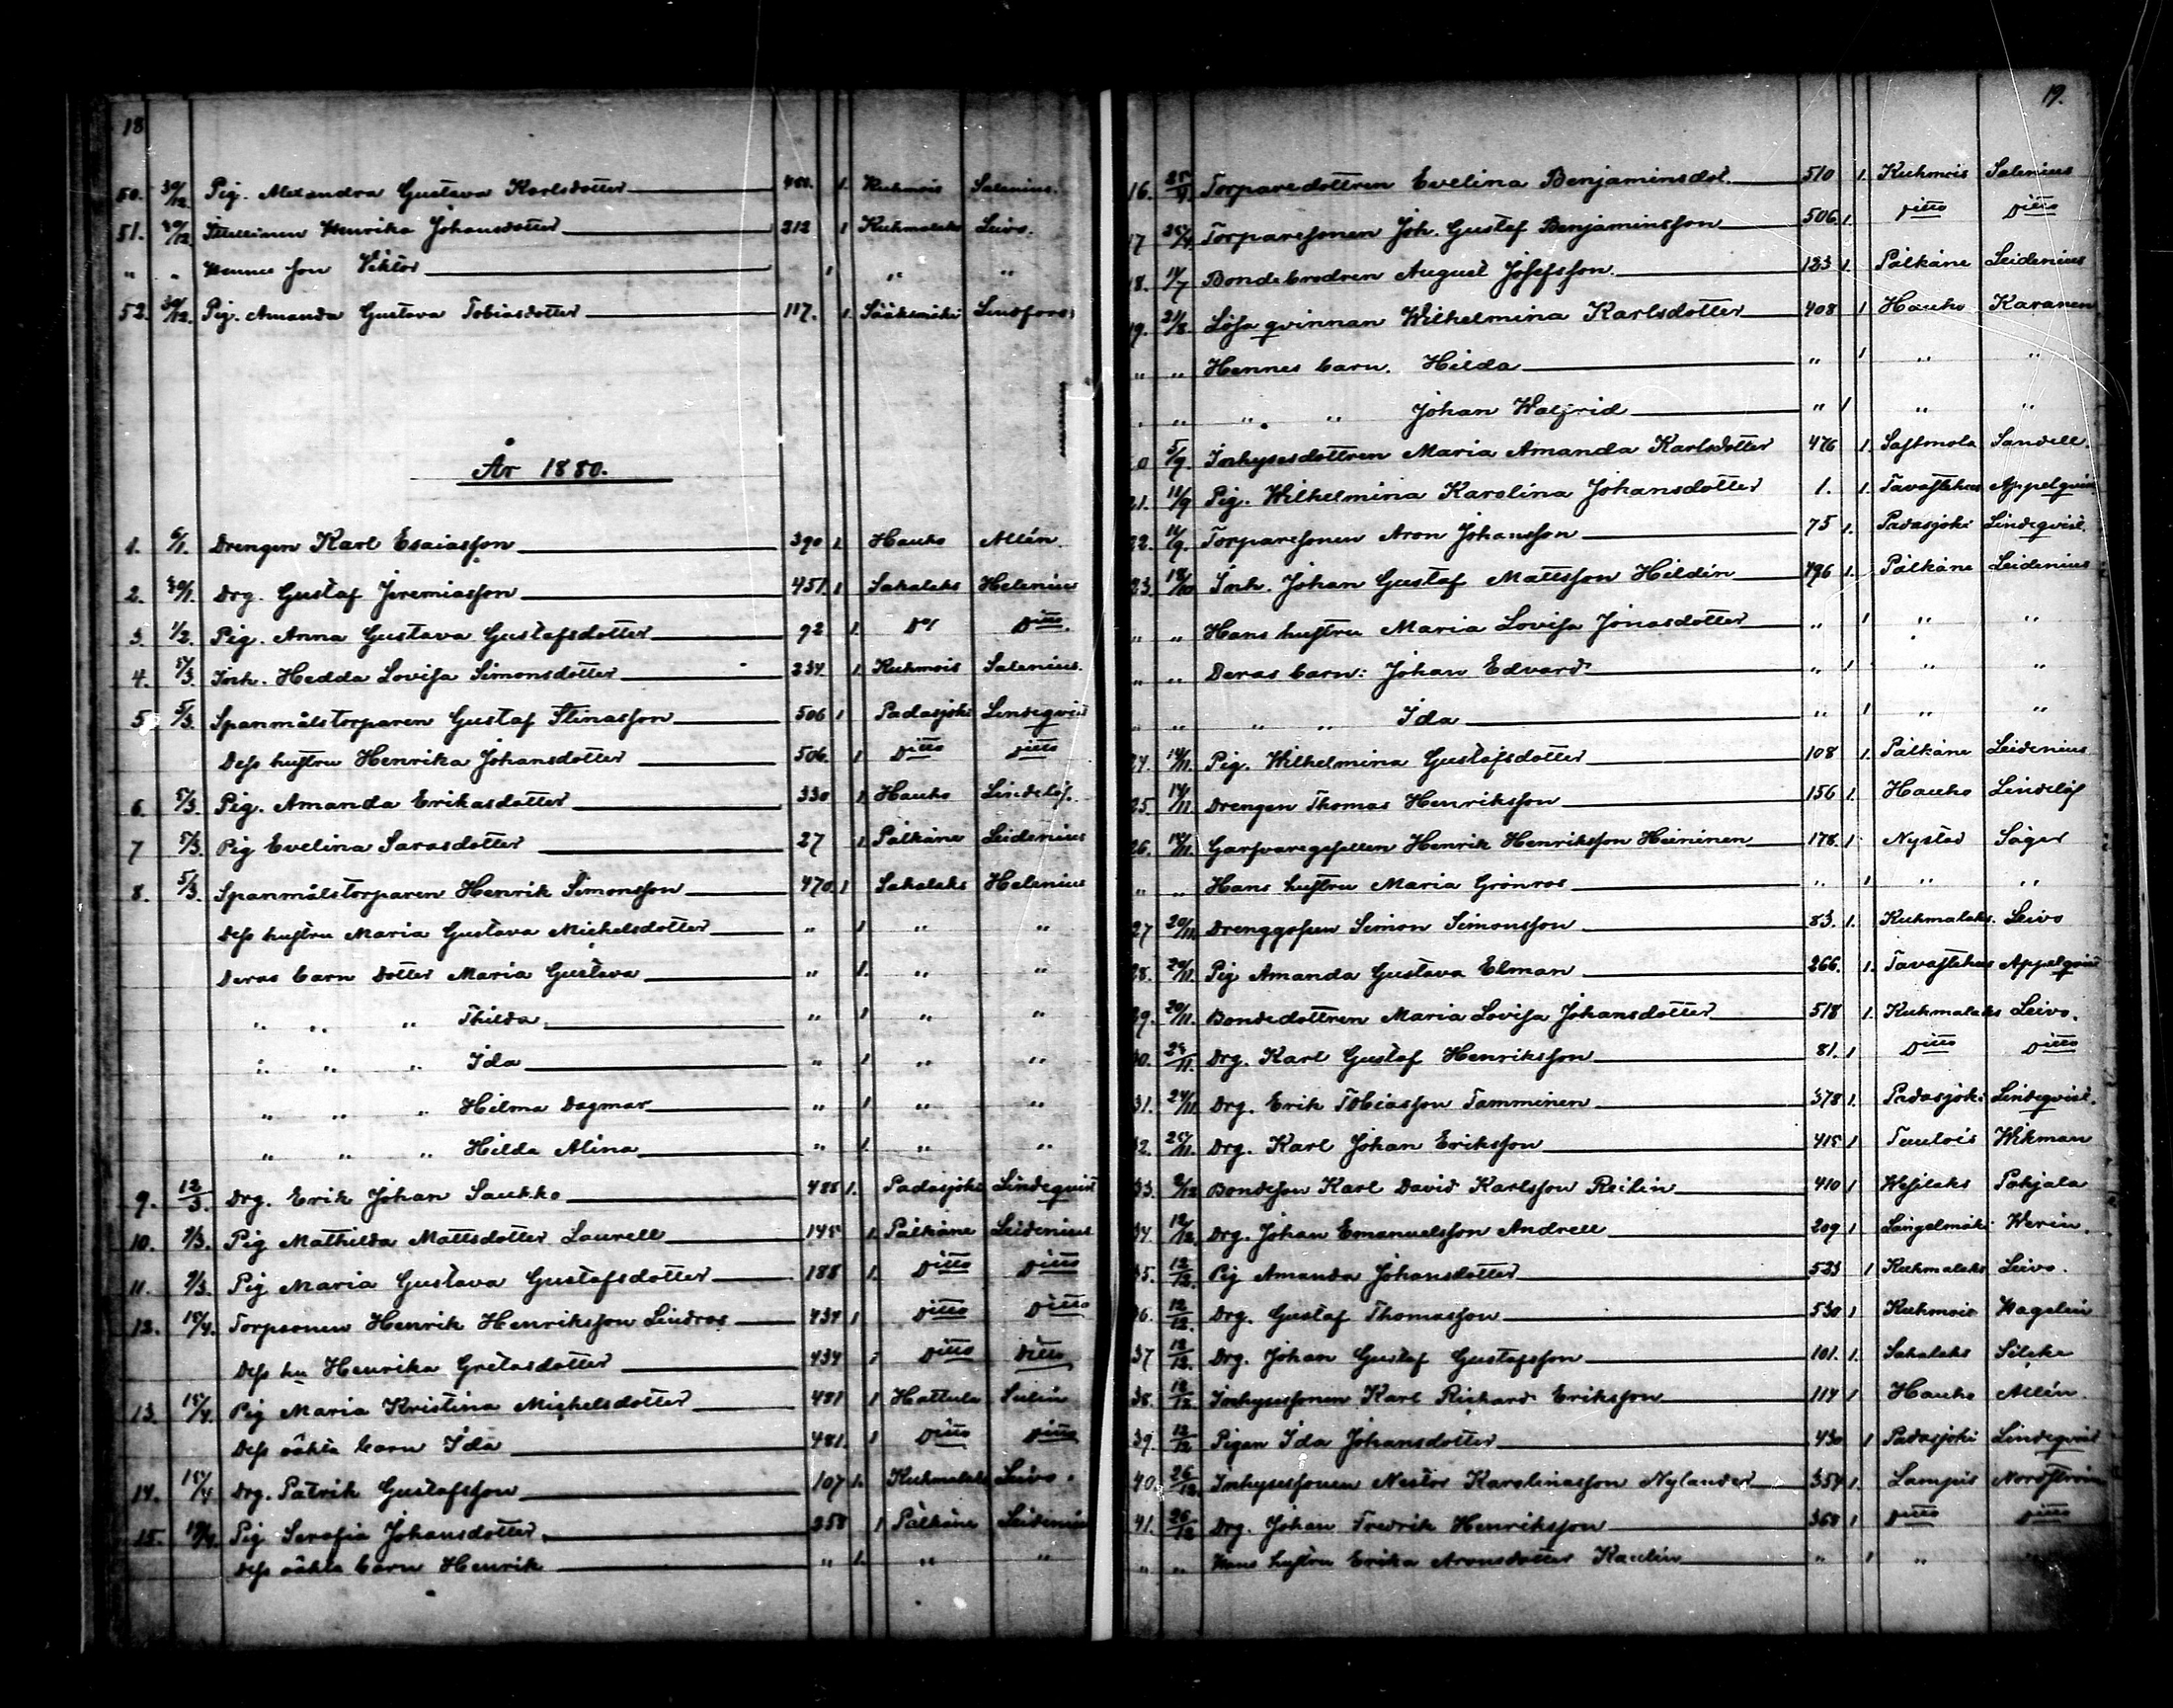 18
50. 30/12. Pig. Alexandra Gustava Karlsdotter 1. Kuhmois Salenius.
51. 30/12. Henrika Johansdotter 212 1 Kuhmalaks Leivo.
" " Hennes son Viktor 1 " "
52. 30/12. Pig. Amanda Gustava Tobiasdotter 117. 1. Sääksmäki Lindfors
År 1880.
1. 6/1. Drengen Karl Esaiasson 390 1. Hauho Allén.
2. 20/1. Drg. Gustaf Jeremiasson 451 1 Sahalaks Helenius
3. 1/2. Pig. Anna Gustava Gustafsdotter 92 1. Do Ditto.
4. 5/3. Inh. Hedda Lovisa Simonsdotter 234 1. Kuhmois Salenius.
5 5/3. Spanmålstorparen Gustaf Stinasson 506 1 Padasjoki Lindeqvist
Dess hustru Henrika Johansdotter 506. 1 Ditto Ditto
6. 5/3. Pig. Amanda Erikasdotter 330 1. Hauho Lindelöf.
7 5/3. Pig Evelina Sarasdotter 27 1. Pälkäne Leidenius
8. 5/3. Spanmålstorparen Henrik Simonsson 470. 1 Sahalaks Helenius
Dess hustru Maria Gustava Michelsdotter " 1 " "
Deras barn dotter Maria Gustava " 1. " "
" " " Thilda " 1 " "
" " " Ida " 1 " "
" " " Hilma Dagmar " 1 " "
" " " Hilda Alina " 1. " "
9. 12/3. Drg. Erik Johan Saukko 488 1. Padasjoki Lindeqvist
10. 9/3. Pig Mathilda Mattsdotter Laurell 145 1. Pälkäne Leidenius
11. 9/3. Pig Maria Gustava Gustafsdotter 188 1. Ditto Ditto
12. 15/4. Torpsonen Henrik Henriksson Lindros 434 1 Ditto Ditto
Dess hu Henrika Gretasdotter 434 1 Ditto Ditto
13. 15/4. Pig Maria Kristina Michelsdotter 481 1 Hattula Sulin
Dess oäkta barn Ida 481. 1 Ditto Ditto
14. 15/4 Drg. Patrik Gustafsson 107 1. Kuhmalaks Leivo.
15. 19/4. Pig Serafia Johansdotter 258 1 Pälkäne Leidenius
Dess oäkta barn Henrik " 1. " "
19.
16. 25/4. Torparedottren Evelina Benjaminsdot. 510 1. Kuhmois Salenius
17 25/4 Torparesonen Joh. Gustaf Benjaminsson 506 1. Ditto Ditto
18. 11/7 Bondebrodren August Josefsson. 123 1. Pälkäne Leidenius
19. 21/8. Lösa qvinnan Wilhelmina Karlsdotter 408 1 Hauho Karanen
" " Hennes barn. Hilda " 1 " "
" " " Johan Walfrid " 1 " "
0 5/9 Inhysesdottren Maria Amanda Karlsdotter 476 1. Sastmola Sandell.
21. 11/9 Pig. Wilhelmina Karolina Johansdotter 1. 1. Tavastehus Appelqvist
22. 11/9. Torparesonen Aron Johansson 75 1. Padasjoki Lindeqvist.
23. 18/10 Inh. Johan Gustaf Mattsson Hildén 496 1. Pälkäne Leidenius
" " Hans hustru Maria Lovisa Jonasdotter " 1 " "
" " Deras barn: Johan Edvard " 1 " "
" " " " Ida " 1 " "
24. 14/11. Pig. Wilhelmina Gustafsdotter 108 1. Pälkäne Leidenius
25. 14/11 Drengen Thomas Henriksson 156 1. Hauho Lindelöf
26. 14/11. Garfvaregesellen Henrik Henriksson Heininen 178. 1 Nystad Säger
" " Hans hustru Maria Grönros " 1 " "
27 20/11. Drenggossen Simon Simonsson 83. 1. Kuhmalaks. Leivo
28. 20/11. Pig Amanda Gustava Elman 266. 1. Tavastehus Appelqvist
29. 20/11. Bondedottren Maria Lovisa Johansdotter 518 1. Kuhmalaks Leivo.
30. /11. Drg. Karl Gustaf Henriksson 81. 1 Ditto Ditto
31. 24/11. Drg. Erik Tobiasson Tamminen 378 1. Padasjoki Lindeqvist.
32. 25/11. Drg. Karl Johan Eriksson 415 1 Tuulois Wikman
33. 9/12 Bondeson Karl David Karlsson Reilin 410 1 Wesilaks Pohjala
34. 12/12. Drg. Johan Emanuelsson Andrell 209 1 Längelmäki Werin.
35. 12/12. Pig Amanda Johansdotter 533 1 Kuhmalaks Leivo.
36. 12/12. Drg. Gustaf Thomasson 530 1 Kuhmois Hagelin
37 12/12. Drg. Johan Gustaf Gustafsson 101. 1. Sahalaks
38. 12/12 Inhysessonen Karl Richard Eriksson 114 1 Hauho Allén.
39. 12/12 Pigan Ida Johansdotter 430 1 Padasjoki Lindeqvist
40. 26/12. Inhysessonen Nestor Karolinasson Nylander 354 1. Lampis Nordström
41. 26/12 Drg. Johan Fredrik Henriksson 368 1 Ditto Ditto
" " Hans hustru Erika Aronsdotter Kaulin " 1 "